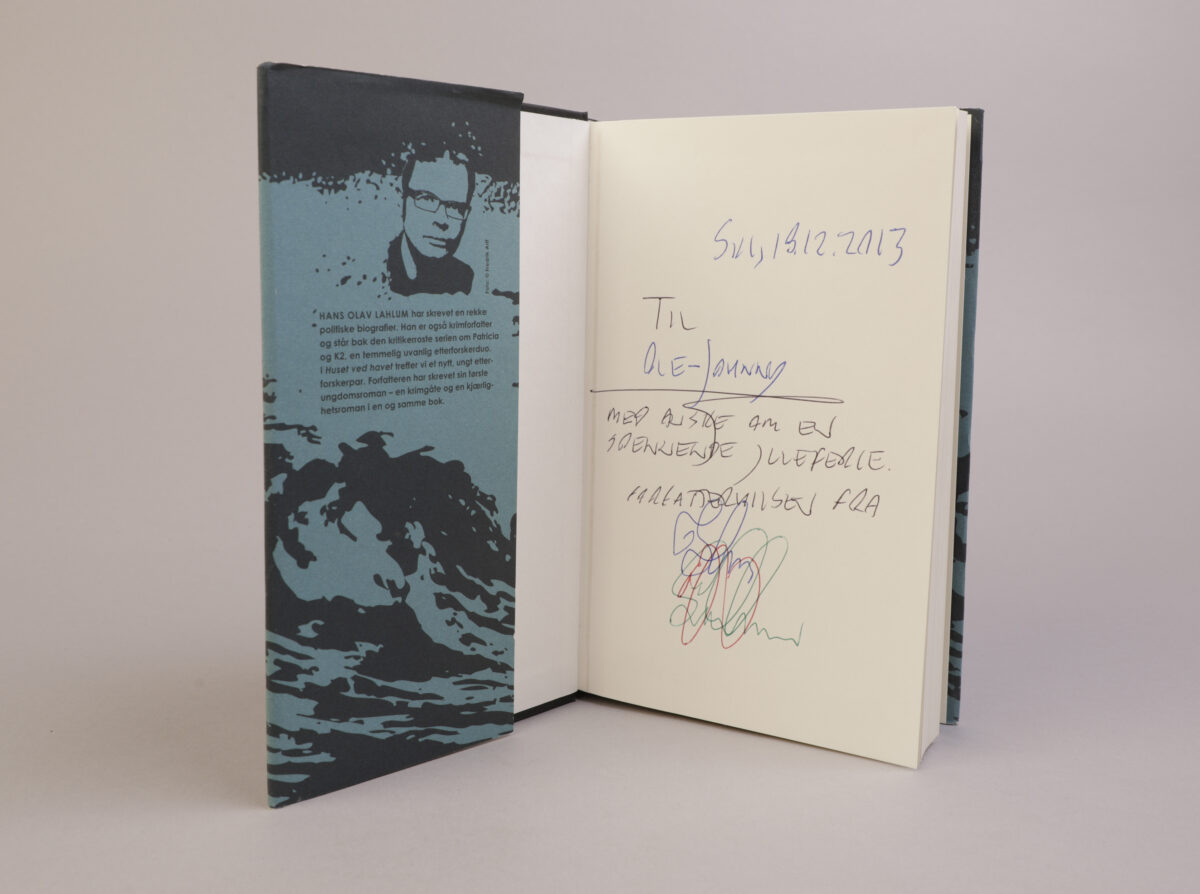 Foto: © Fredrik Arff
HANS OLAV LAHLUM har skrevet en rekke
politiske biografier. Han er også krimforfatter
og står bak den kritikerroste serien om Patricia
og K2, en temmelig uvanlig etterforskerduo.
I Huset ved havet treffer vi et nytt, ungt etter-
forskerpar. Forfatteren har skrevet sin første
ungdomsroman – en krimgåte og en kjærlig-
hetsroman i en og samme bok.
19.12.2013
TIL
OLE-JOHNNY
MED ØNSKE OM EN
SPENNENDE JULEFERIE.
FORFATTERHILSEN FRA